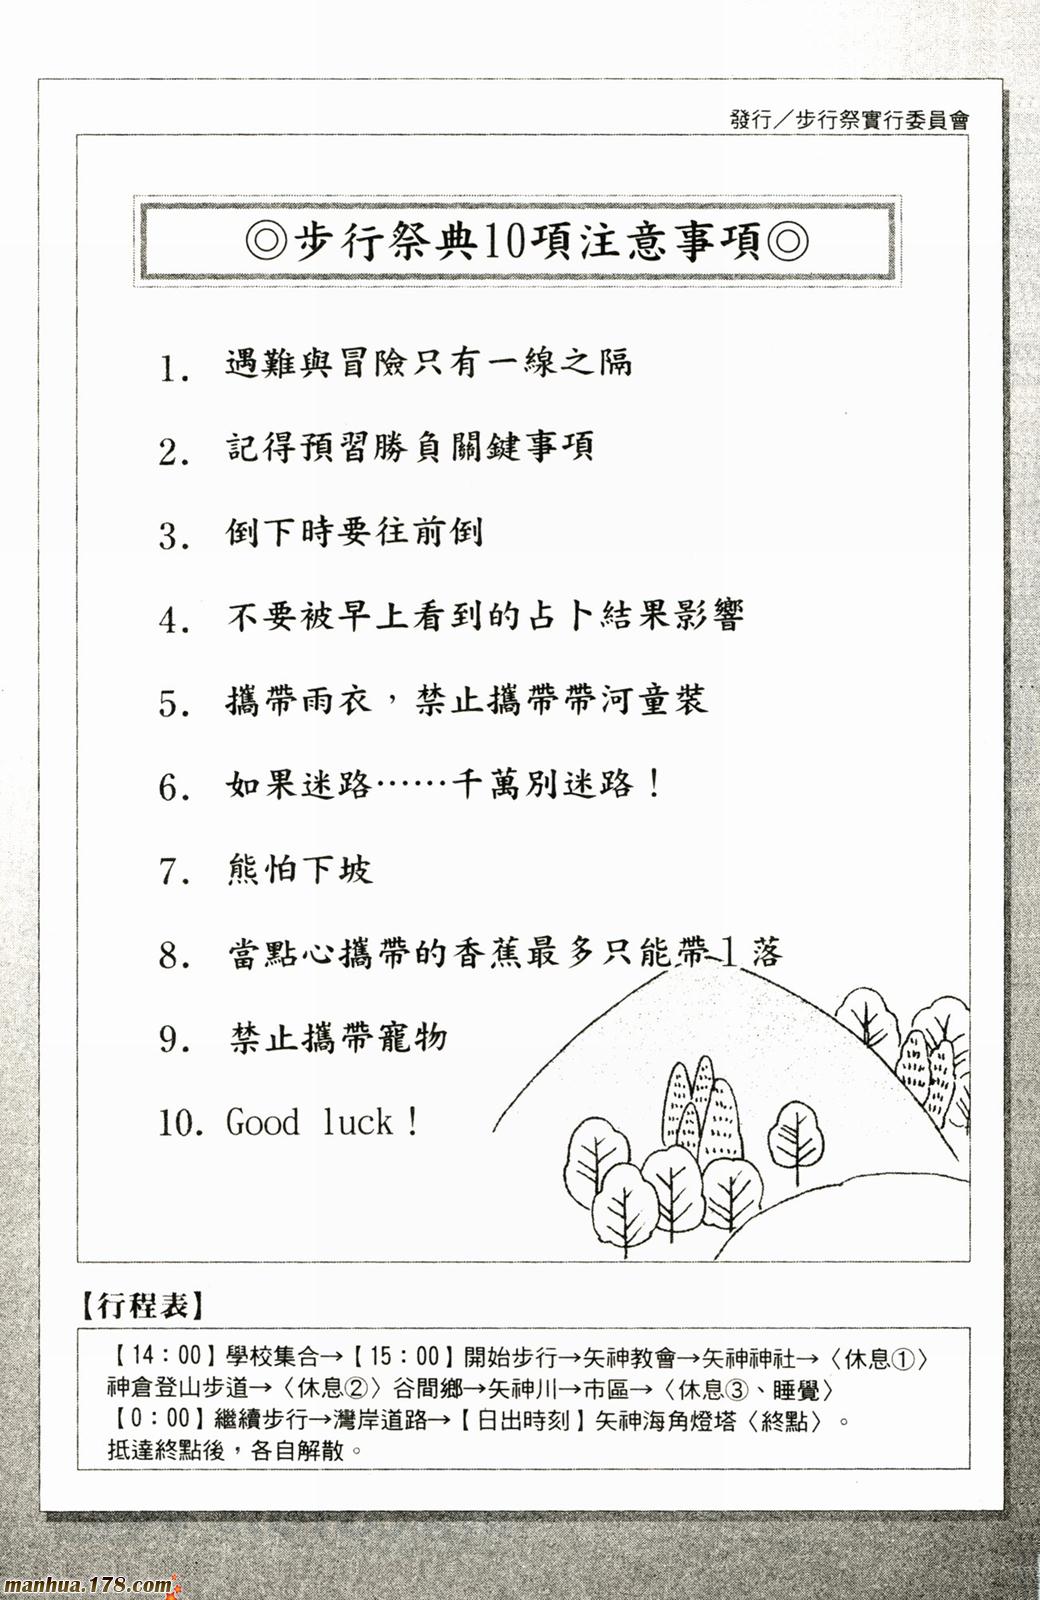 發行／步行祭實行委員會
◎步行祭典10項注意事項◎
1. 遇難與冒險只有一線之隔
2. 記得預習勝負關鍵事項
3. 倒下時要往前倒
4. 不要被早上看到的占卜結果影響
5. 攜帶雨衣，禁止攜帶帶河童裝
6. 如果迷路……千萬別迷路！
7. 熊怕下坡
8. 當點心攜帶的香蕉最多只能帶1落
9. 禁止攜帶寵物
10. Good luck！
【行程表】
【14：00】學校集合→【15：00】開始步行→矢神教會→矢神神社→〈休息①〉
神倉登山步道→〈休息②〉谷間鄉→矢神川→市區→〈休息③、睡覺〉
【0：00】繼續步行→灣岸道路→【日出時刻】矢神海角燈塔〈終點〉。
抵達終點後，各自解散。
manhua.178.com